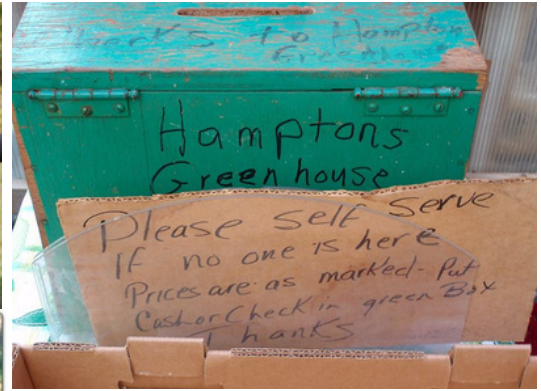 Checks To Hampton
Greenhouse
Hamptons
Greenhouse
Please self serve
If no one is here
Prices are as marked - Put
Cash or Check in green Box
Thanks